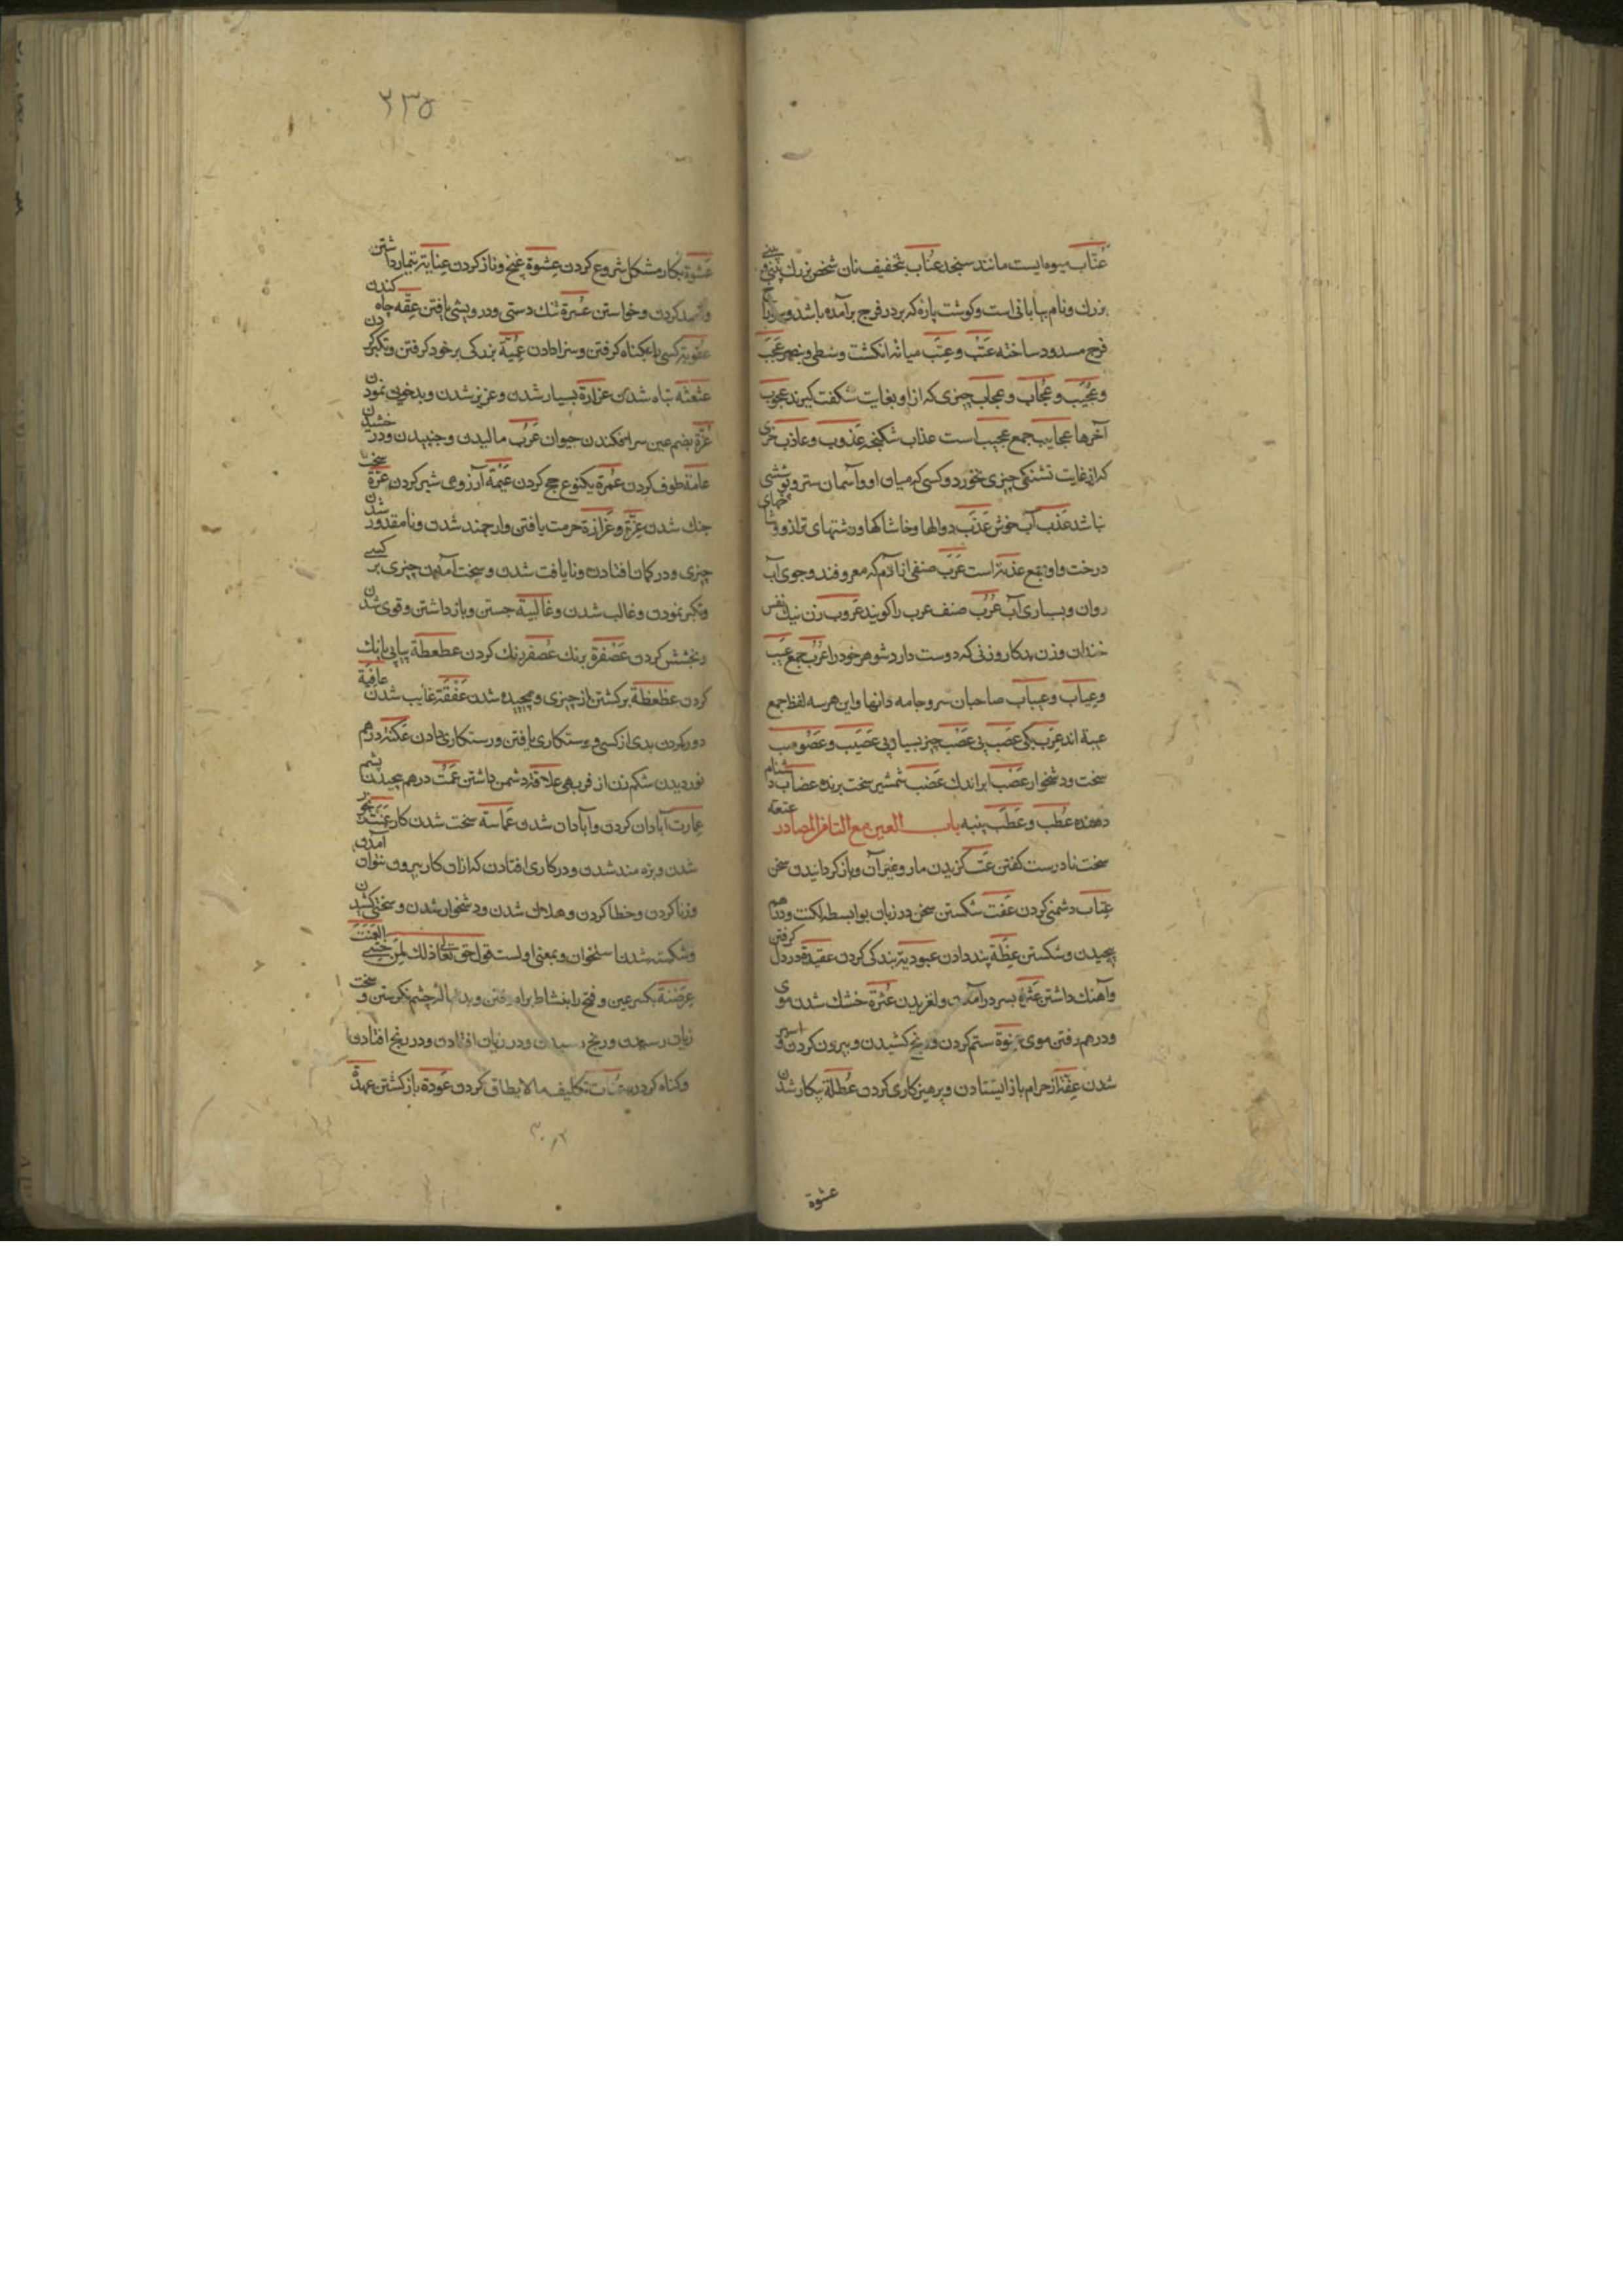 عُنّاب میوه ایست مانند سنجد عُناب بتخفیف نان شخص بزرك بینی
بزرك ونام بیابانی است وکوشت پاره که بر در فرج برآمده باشد و
فرج مسدود ساخته عَتَب وعِتَب میانه انکشت وسطی وبنصر عَجَب
وعَجیب وعُجاب وعجاب چیزی که ازاو بغایت شکفت کیرند عجوب
آخرها عجایب جمع عجیب است عذاب شکنجه عَذوب وعاذب خری
که از غایت تشنکی چیزی نخورد وکسی که میان او وآسمان ستر وپوششی
نباشد عَذب آب خوش عَذَب دوالها وخاشاکها ورشتهای ترازو وشاخهای
درخت واو جمع عذبة است عَرَب صنفی از آدم که معروفند وجوی آب
روان وبسیاری آب عُرُب صنف عرب را کویند عَروب زن نیك نفس
خندان وزن بدکار وزنی که دوست دارد شوهر خود را عُرُب جمع عَیب
وعِیاب وعیباب صاحبان سر وجامه دانها واین هرسه لفظ جمع
عیبة اند عَزَب یکی عَصَب پی عَصْب چیز بسیار پی عَصیب وعَصَوصب
سخت ودشخوار عَضْب ابر اندك عَضب شمشیر سخت برنده عضاب دشنام
دهنده عُطْب وعَطَب پنبه باب العین مع التا من المصادر عتعته
سخت نادرست کفتن عَتّ کزیدن مار وغیر آن وباز کردانیدن سخن
عِتاب دشمنی کردن عَفت شکستن سخن در زبان بواسطه لکنت ودرهم
پیچیدن وشکستن عِظَة پند دادن عبودیة بندکی کردن عقیدة در دل کرفتن
وآهنك داشتن عَثرة بسر درآمدن ولغزیدن عُثرة خشك شدن موی
ودرهم رفتن موی عنوة ستم کردن ورنج کشیدن وبیرون کردن واسیر
شدن عِفّة از حرام باز ایستادن وپرهیزکاری کردن عُطلة بیکار شدن
عشوة
٢٣٥
عَشوة بکار مشکل شروع کردن عِشوة غنج وناز کردن عِنایة تیمار داشتن
و کردن وخواستن عُسرة تنك دستی ودرویشی یافتن عِقّه چاه کندن
عقوبة کسی را بکناه کرفتن وسزا دادن عُبیّة بزرکی بر خود کرفتن وتکبر کردن
عثعثة تباه شدن عزازة بسیار شدن وعزیز شدن وبدخوی نمودن
عُرّة بضم عین سر افکندن حیوان عَرْت مالیدن وجنبیدن ودرخشیدن
عامة طوف کردن عُمرة یکنوع حج کردن عَیْمَة آرزوی شیر کردن عَزّة سخت
جنك شدن عِزّة وعَزازة حرمت یافتن وارجمند شدن ونامقدور شدن
چیزی ودر کمان افتادن ونایافت شدن وسخت آمدن چیزی بر کسی
وتکبر نمودن وغالب شدن وغالبیة جستن وباز داشتن وقوی شدن
وبخشش کردن عَصْفرة برنك عُصفر رنك کردن عطعطة پیاپی بانك
کردن عظعظة برکشتن از چیزی وپیچیده شدن عَفْقَة غایب شدن عافیة
دور کردن بدی از کسی ورستکاری یافتن ورستکاری دادن عکنة درهم
نوردیدن شکم زن از فربهی علاقة دشمن داشتن عَمْت درهم پیچیدن پشم
عِمارت آبادان کردن وآبادان شدن عَماسة سخت شدن کار عَنَت
شدن وبزه مند شدن ودر کاری افتادن که ازان کار بیرون نتوان آمدن
وزنا کردن وخطا کردن وهلاك شدن ودشخوار شدن وسختی کشیدن
وشکسته شدن استخوان وبمعنی اولست قول حق تعالی ذلك لمن خشی العنت
عِرَضنة بکسر عین وفتح را بنشاط براه رفتن وبدنبال چشم نکریستن وسخت
زیان رسیدن ورنج رسیدن ودر زیان افتادن ودر رنج افتادن
وکناه کردن تکلیف مالایطاق کردن عَودة باز کشتن عهدة